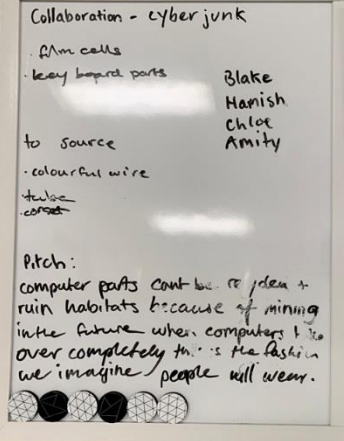 Collaboration - cyberjunk
· film cells
· key board parts
Blake
Hamish
Chloe
Amity
to source
· colourful wire
tulse
· corset
Pitch:
computer parts cant be
ruin habitats because of mining
in the future when computers
over completely this is the fashion
we imagine people will wear.